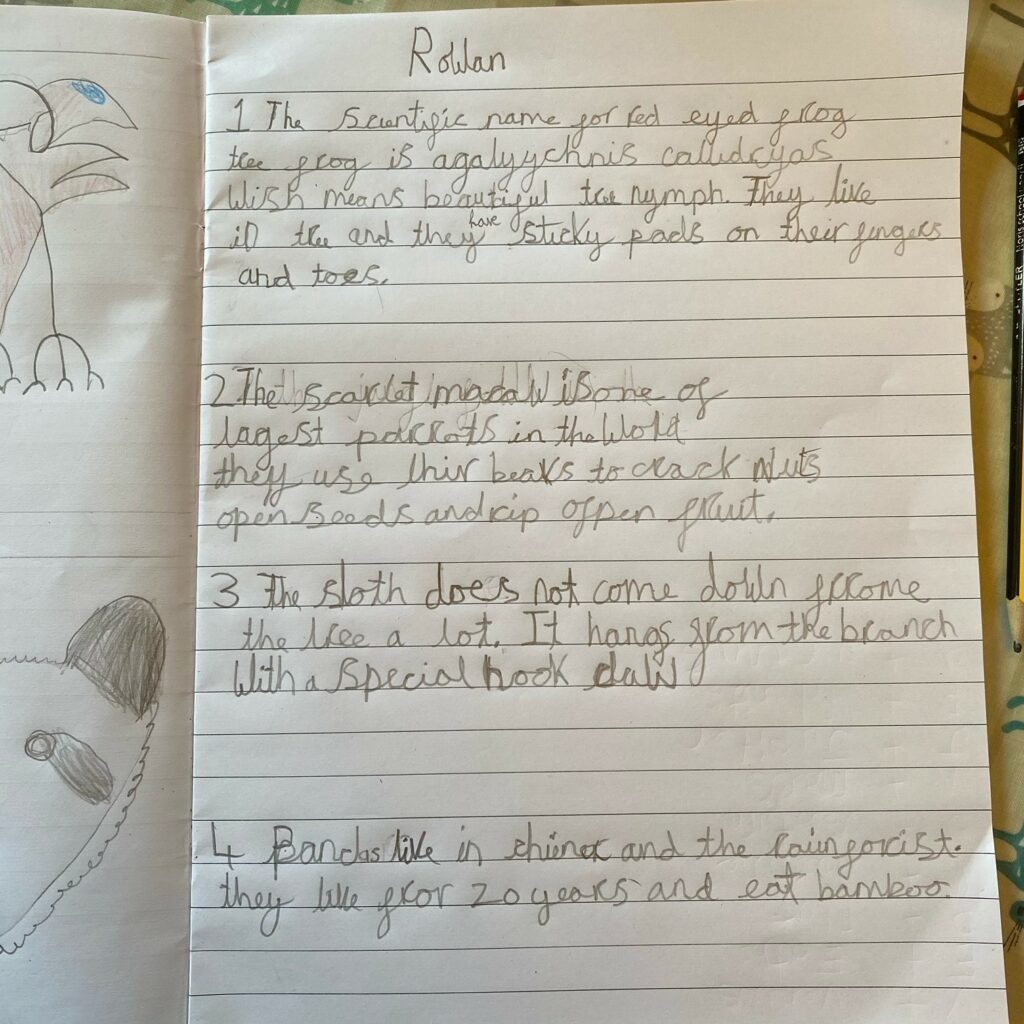 Rowan
1 The scientific name for red eyed frog
tree frog is agalyychnis callidryas
wish means beautiful tree nymph. They live
in tree and they have sticky pads on their fingers
and toes.
2 The scarlet macaw is one of
lagest parrots in the world
they use thir beaks to crack nuts
open seeds and rip ofpen fruit.
3 The sloth does not come down frome
the tree a lot. It hangs from the branch
with a special hook claw
4 Pandas live in chiner and the rainforist.
they live fror 20 years and eat bamboo.